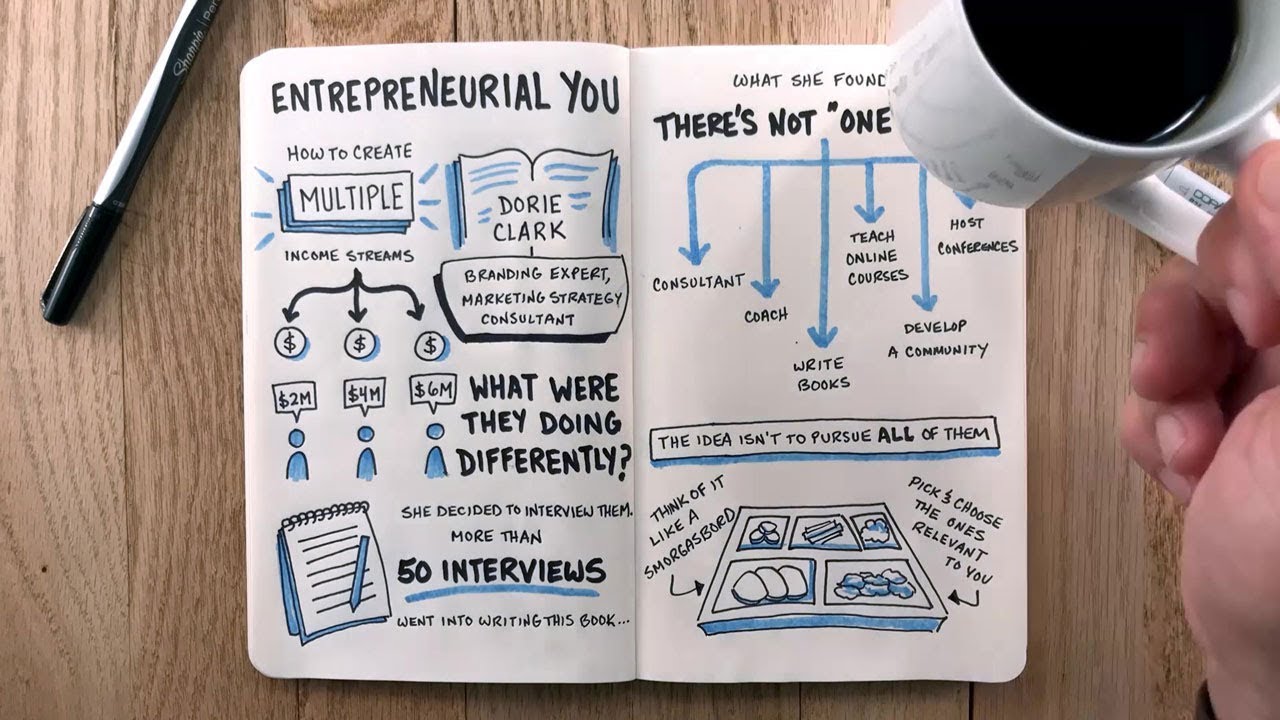 ENTREPRENEURIAL YOU
HOW TO CREATE
MULTIPLE
INCOME STREAMS
$ $ $
$2M $4M $6M
DORIE
CLARK
BRANDING EXPERT,
MARKETING STRATEGY
CONSULTANT
WHAT WERE
THEY DOING
DIFFERENTLY?
SHE DECIDED TO INTERVIEW THEM.
MORE THAN
50 INTERVIEWS
WENT INTO WRITING THIS BOOK...
WHAT SHE FOUND
THERE'S NOT "ONE
CONSULTANT
COACH
WRITE
BOOKS
TEACH
ONLINE
COURSES
DEVELOP
A COMMUNITY
HOST
CONFERENCES
THE IDEA ISN'T TO PURSUE ALL OF THEM
THINK OF IT
LIKE A
SMORGASBORD
PICK & CHOOSE
THE ONES
RELEVANT
TO YOU
Sharpie